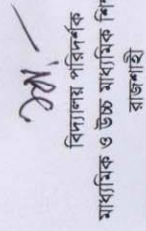 বিদ্যালয় পরিদর্শক
মাধ্যমিক ও উচ্চ মাধ্যমিক
রাজশাহী